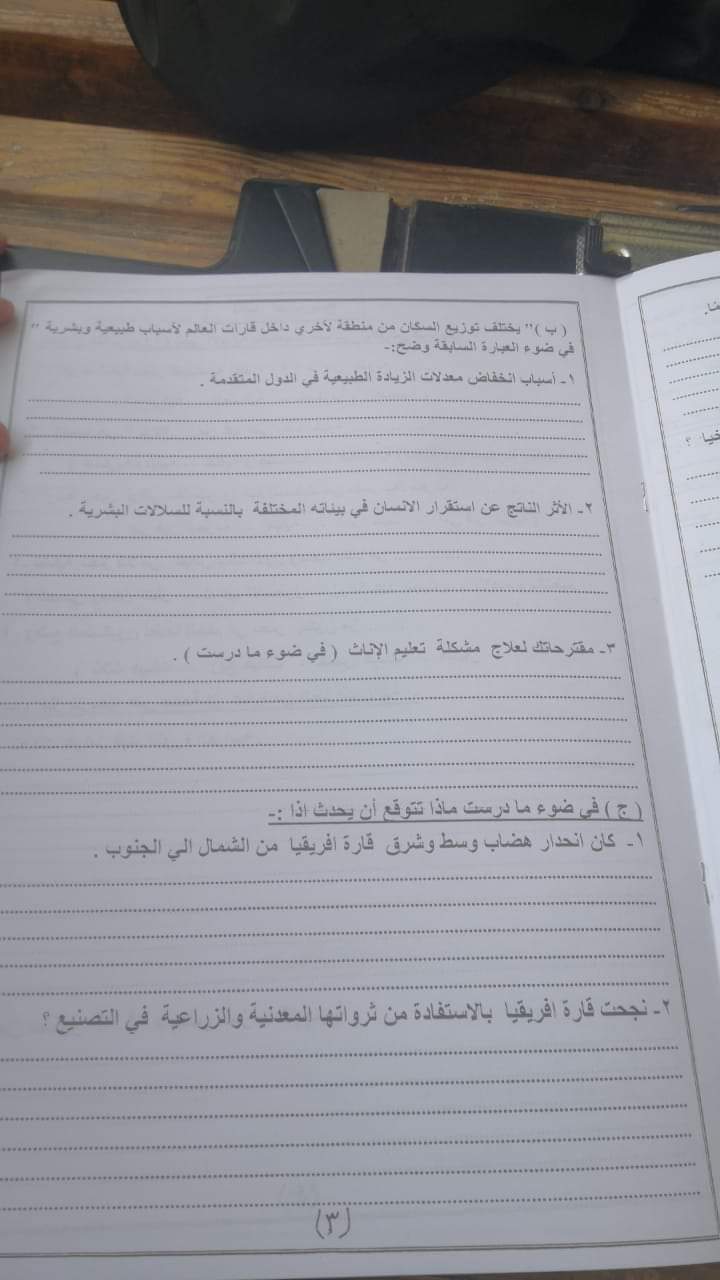 ( ب )" يختلف توزيع السكان من منطقة لأخري داخل قارات العالم لأسباب طبيعية وبشرية "
في ضوء العبارة السابقة وضح:-
١- أسباب انخفاض معدلات الزيادة الطبيعية في الدول المتقدمة .
٢- الأثر الناتج عن استقرار الانسان في بيئاته المختلفة بالنسبة للسلالات البشرية .
٣- مقترحاتك لعلاج مشكلة تعليم الإناث ( في ضوء ما درست ) .
( ج ) في ضوء ما درست ماذا تتوقع أن يحدث اذا :-
١- كان انحدار هضاب وسط وشرق قارة افريقيا من الشمال الي الجنوب .
٢- نجحت قارة افريقيا بالاستفادة من ثرواتها المعدنية والزراعية في التصنيع ؟
(٣)